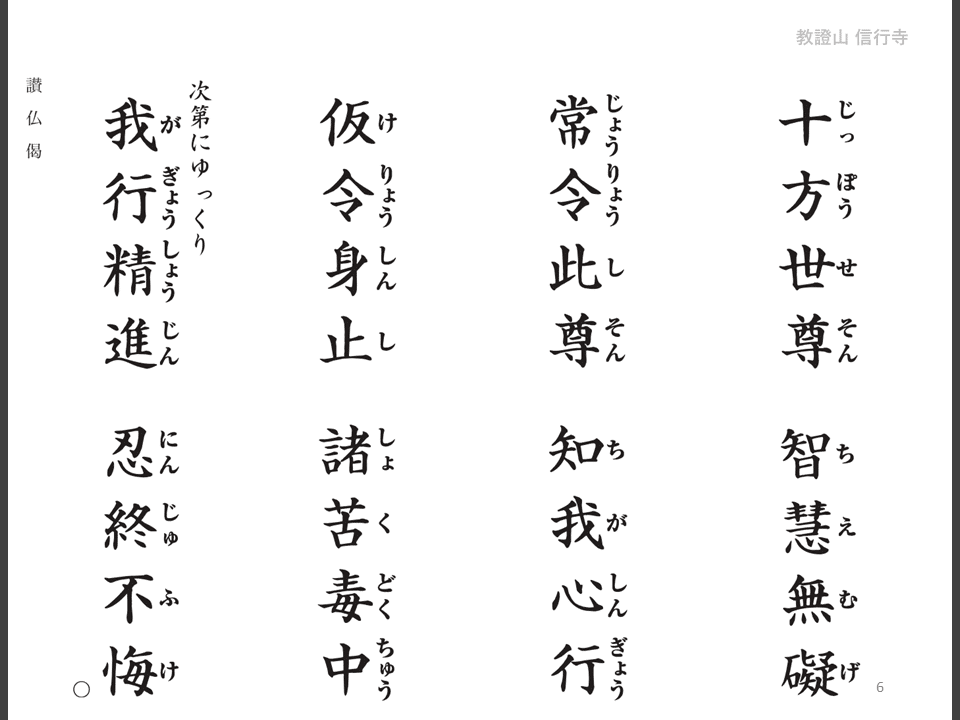 教證山 信行寺
十方世尊 智慧無礙
じっぽうせそん ちえむげ
常令此尊 知我心行
じょうりょうしそん ちがしんぎょう
仮令身止 諸苦毒中
けりょうしんし しょくどくちゅう
次第にゆっくり
我行精進 忍終不悔
がぎょうしょうじん にんじゅふけ
○
讃仏偈
6